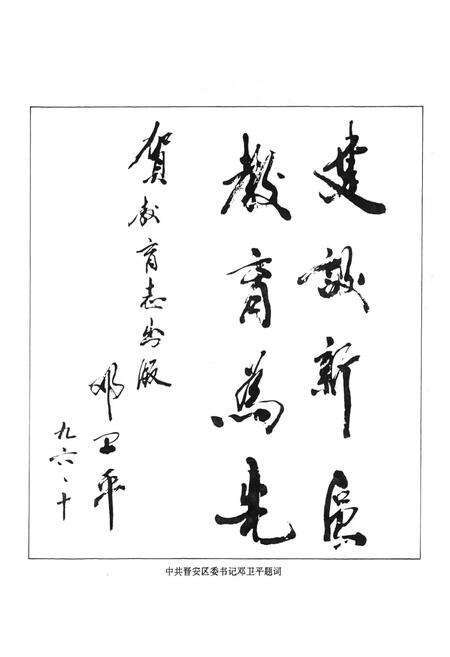 建設新區
教育為先
賀教育志出版
邓卫平
九六、十
中共晋安区委书记邓卫平题词